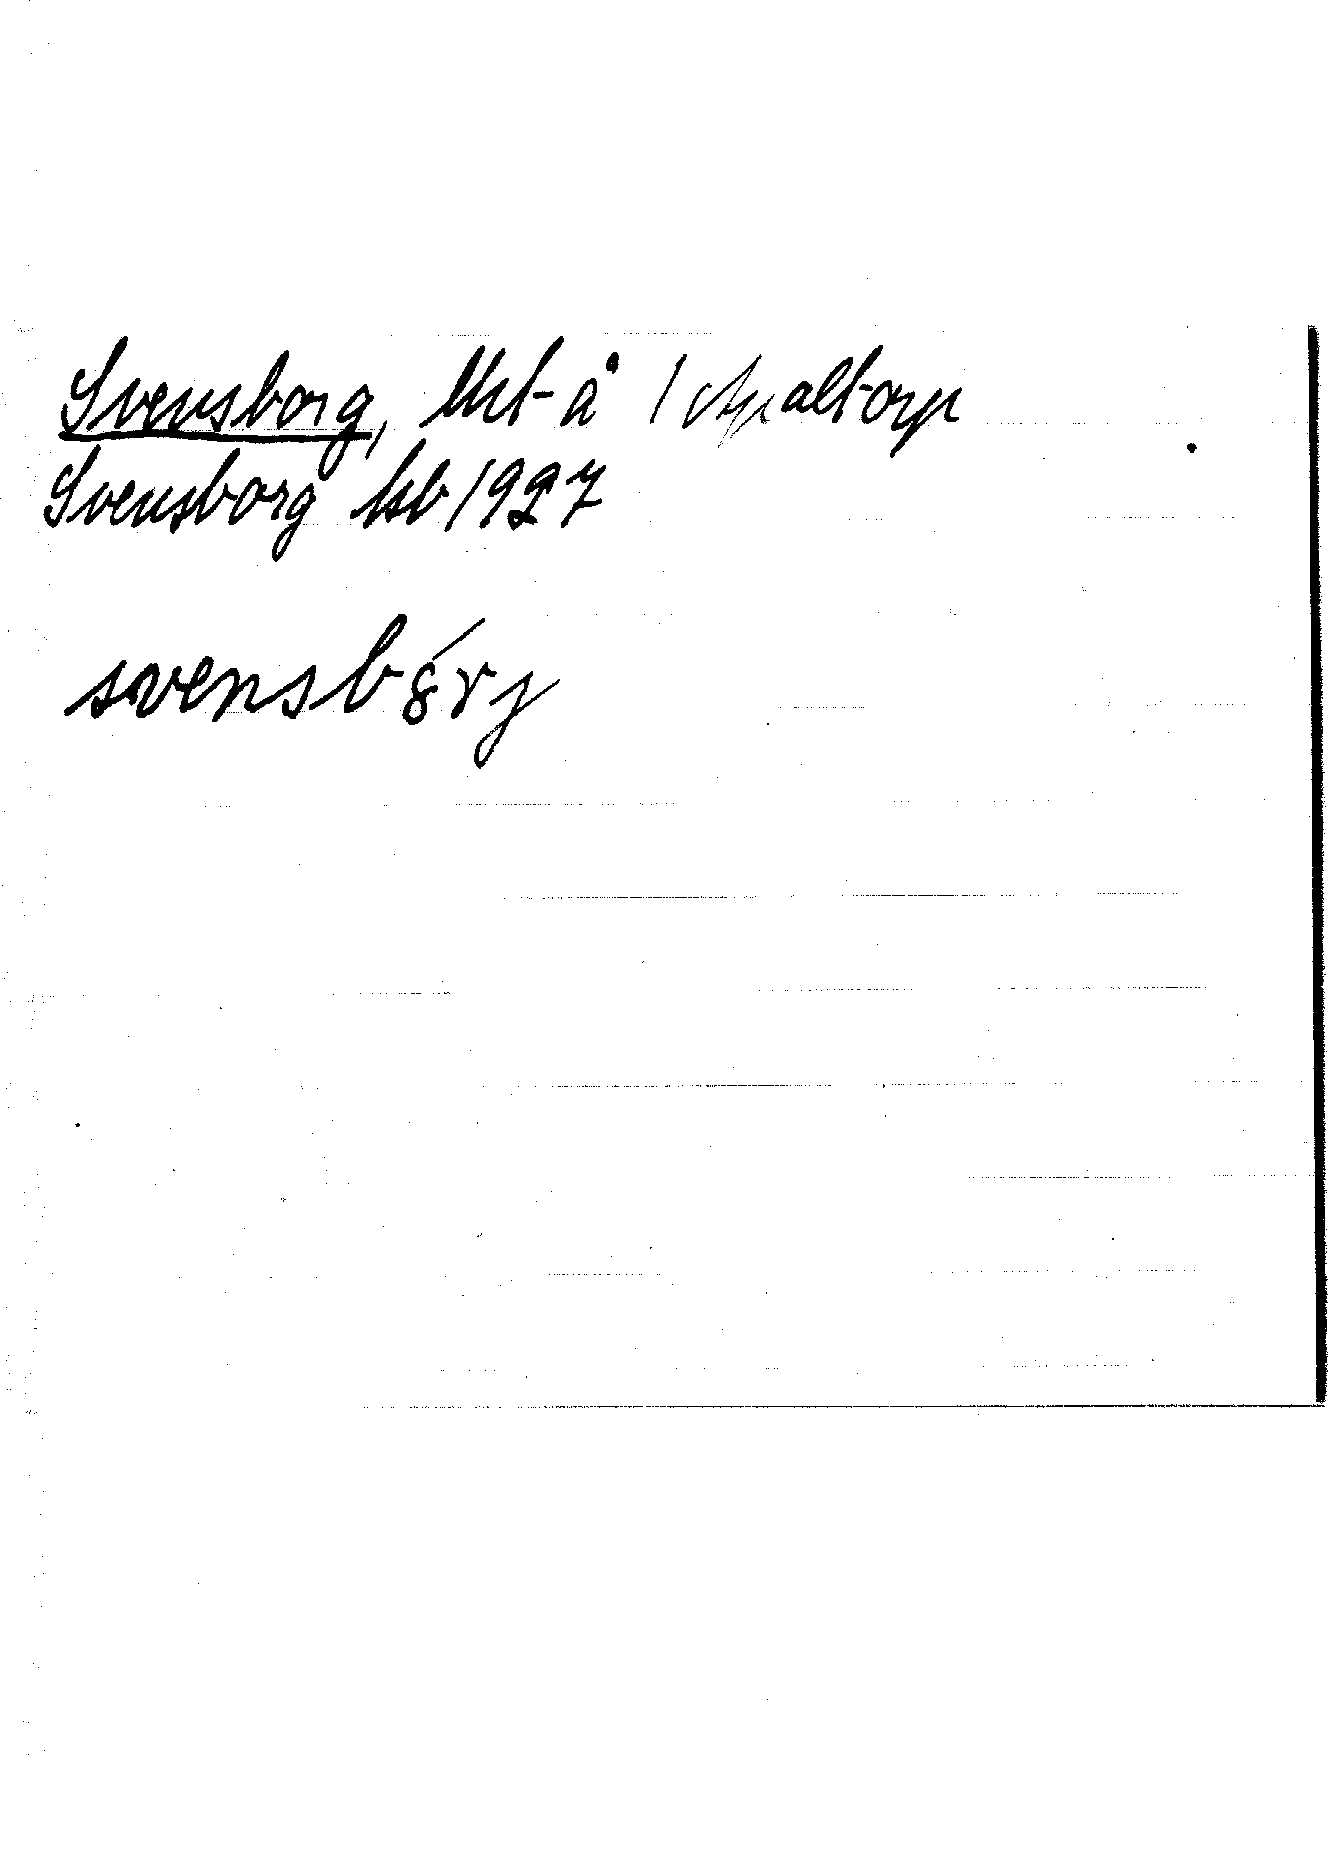 Svensborg, lht å 1 Apaltorp
Svensborg hb 1927
svensbȣ́rj